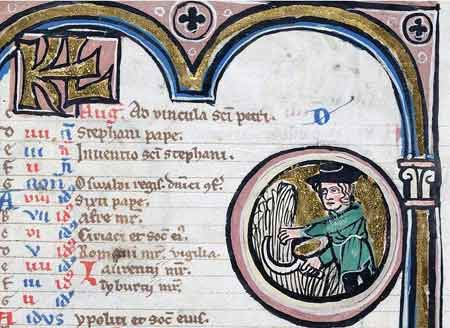 KL
c Aug. Ad vincula sci petri. D
d iiii n Stephani pape.
e iii n Inventio sci stephani.
f ii n
g non Oswaldi regis. dnici
A viii id Sixti pape
b vii id Afre mr.
c vi id Ciriaci et soc ei9.
d v id Romani mr. vigilia
e iiii id Laurentii mr.
f iii id Tyburtii mr.
g ii id
A idus ypoliti et soc eius.